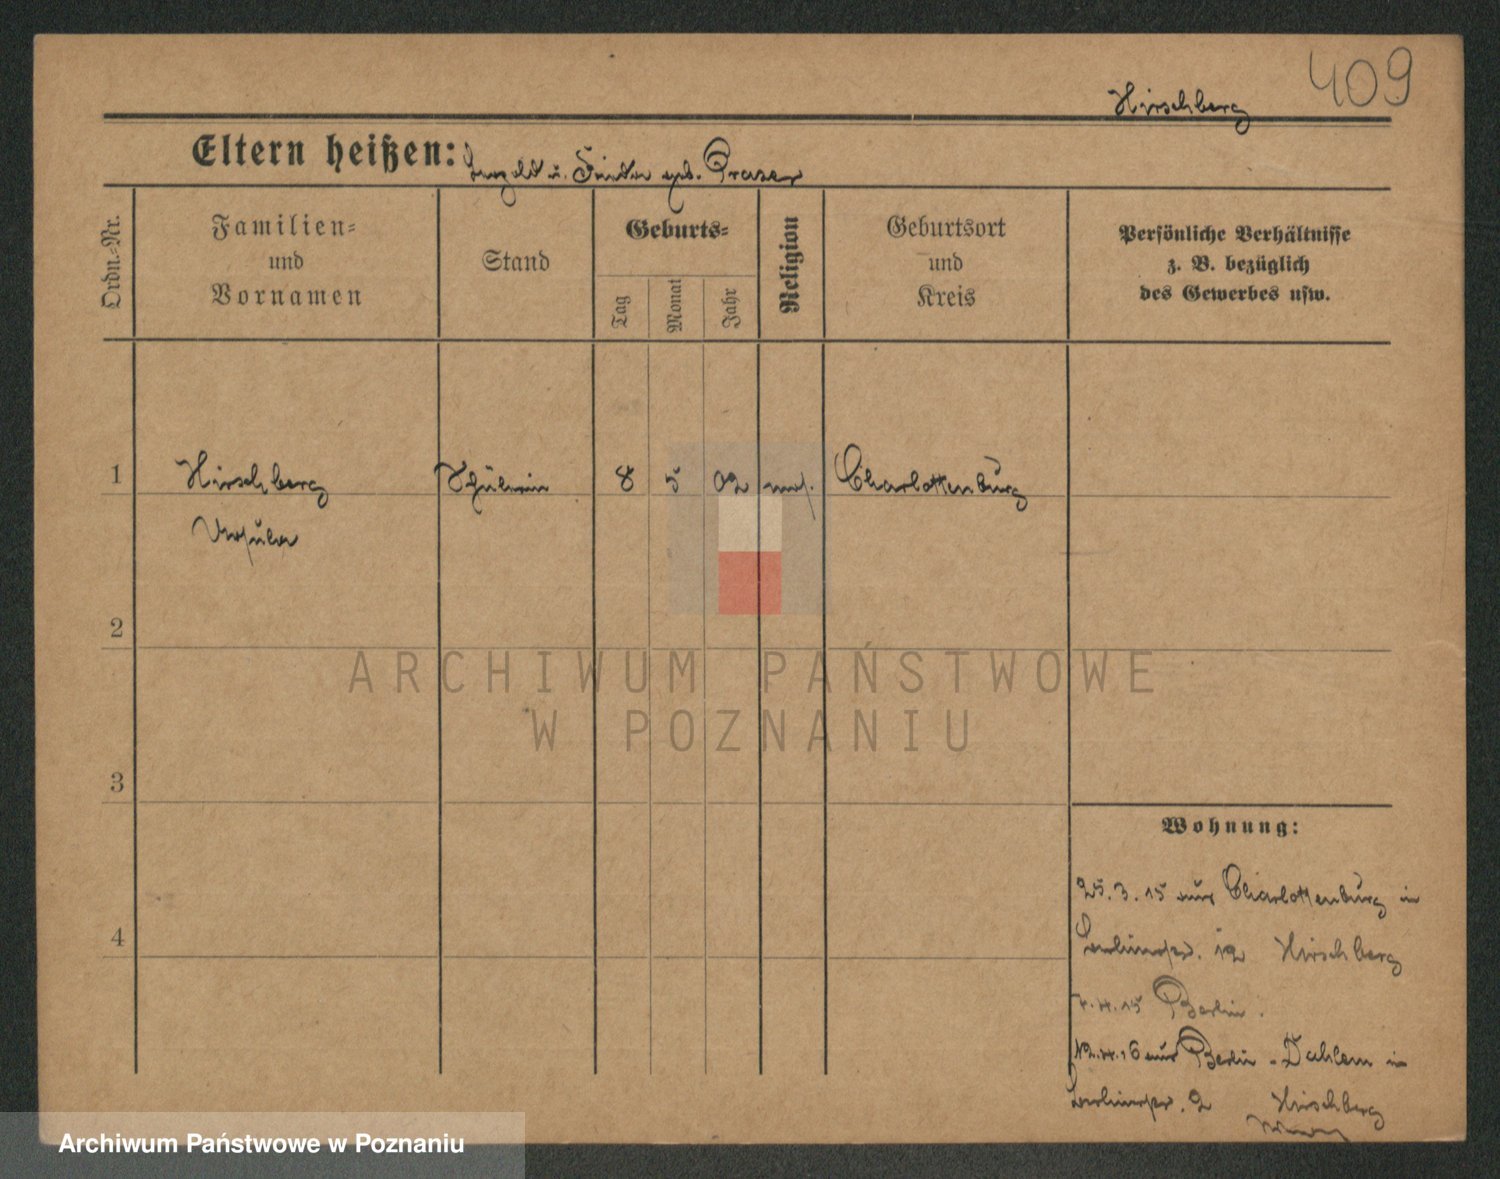 409
Hirschberg
Eltern heißen: Leopold u. geb. Praser
Ordn.-Nr.
Familien-
und
Vornamen
Stand
Geburts-
Tag
Monat
Jahr
Religion
Geburtsort
und
Kreis
Persönliche Verhältnisse
z. B. bezüglich
des Gewerbes usw.
1
Hirschberg Schülerin 8 5 02 mos. Charlottenburg
Ursula
2
ARCHIWUM PAŃSTWOWE
W POZNANIU
3
Wohnung:
25.3.15 aus Charlottenburg in
12 Hirschberg
4
7.4.15 Berlin.
12.4.16 aus Berlin-Dahlem in
2 Hirschberg
Archiwum Państwowe w Poznaniu